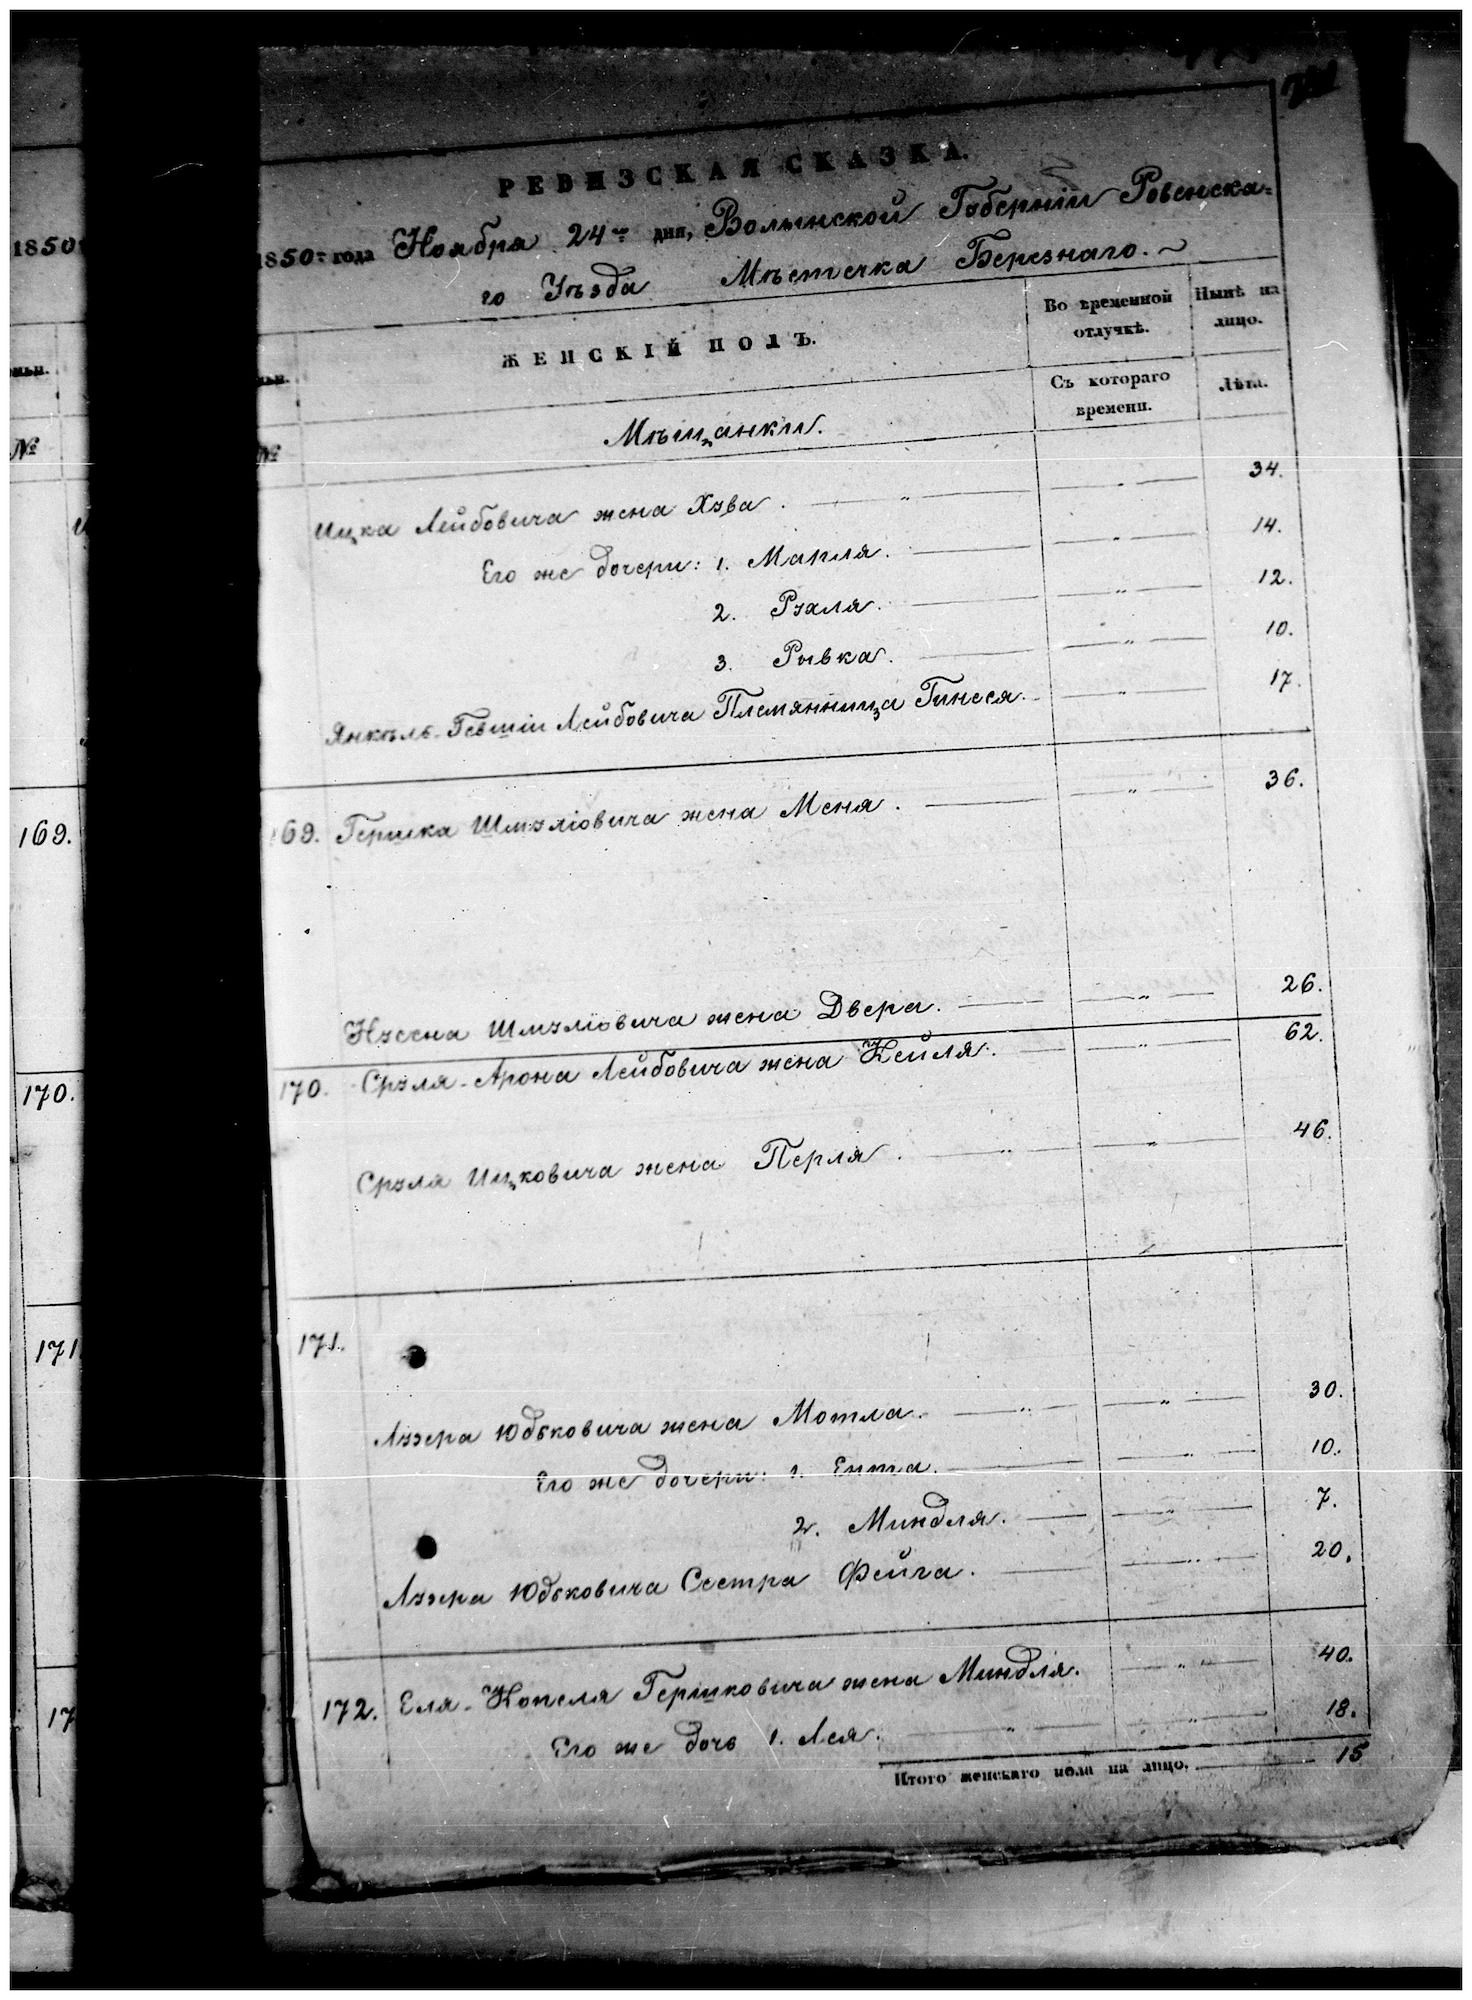 РЕВИЗСКАЯ СКАЗКА.
1850 года Ноября 24го дня, Волынской Губерніи Ровенска-
го Уѣзда Мѣстечка Березнаго.
ЖЕНСКІЙ ПОЛЪ.
Во временной отлучкѣ.
Нынѣ на лицо.
№
Съ котораго времени.
Лѣта.
Мѣщанки.
Ицка Лейбовича жена Хэва. 34.
Его же дочери: 1. Мапля. 14.
2. Рэхля. 12.
3. Рывка. 10.
Янкель-Гевшіи Лейбовича Племянница Гинеся. 17.
169. Гершка Шмэліовича жена Меня. 36.
Нэсена Шмэліовича жена Двера. 26.
170. Срэля-Арона Лейбовича жена Кейля. 62.
Срэля Ицковича жена Перля. 46.
171.
Лэзера Юдьковича жена Мотла. 30.
Его же дочери: 1. Ента. 10.
2. Миндля. 7.
Лэзера Юдьковича Сестра Фейга. 20.
172. Еля-Копеля Гершковича жена Миндля. 40.
Его же дочь 1. Лея. 18.
Итого женскаго пола на лицо. 15
1850
№
169.
170.
171
17